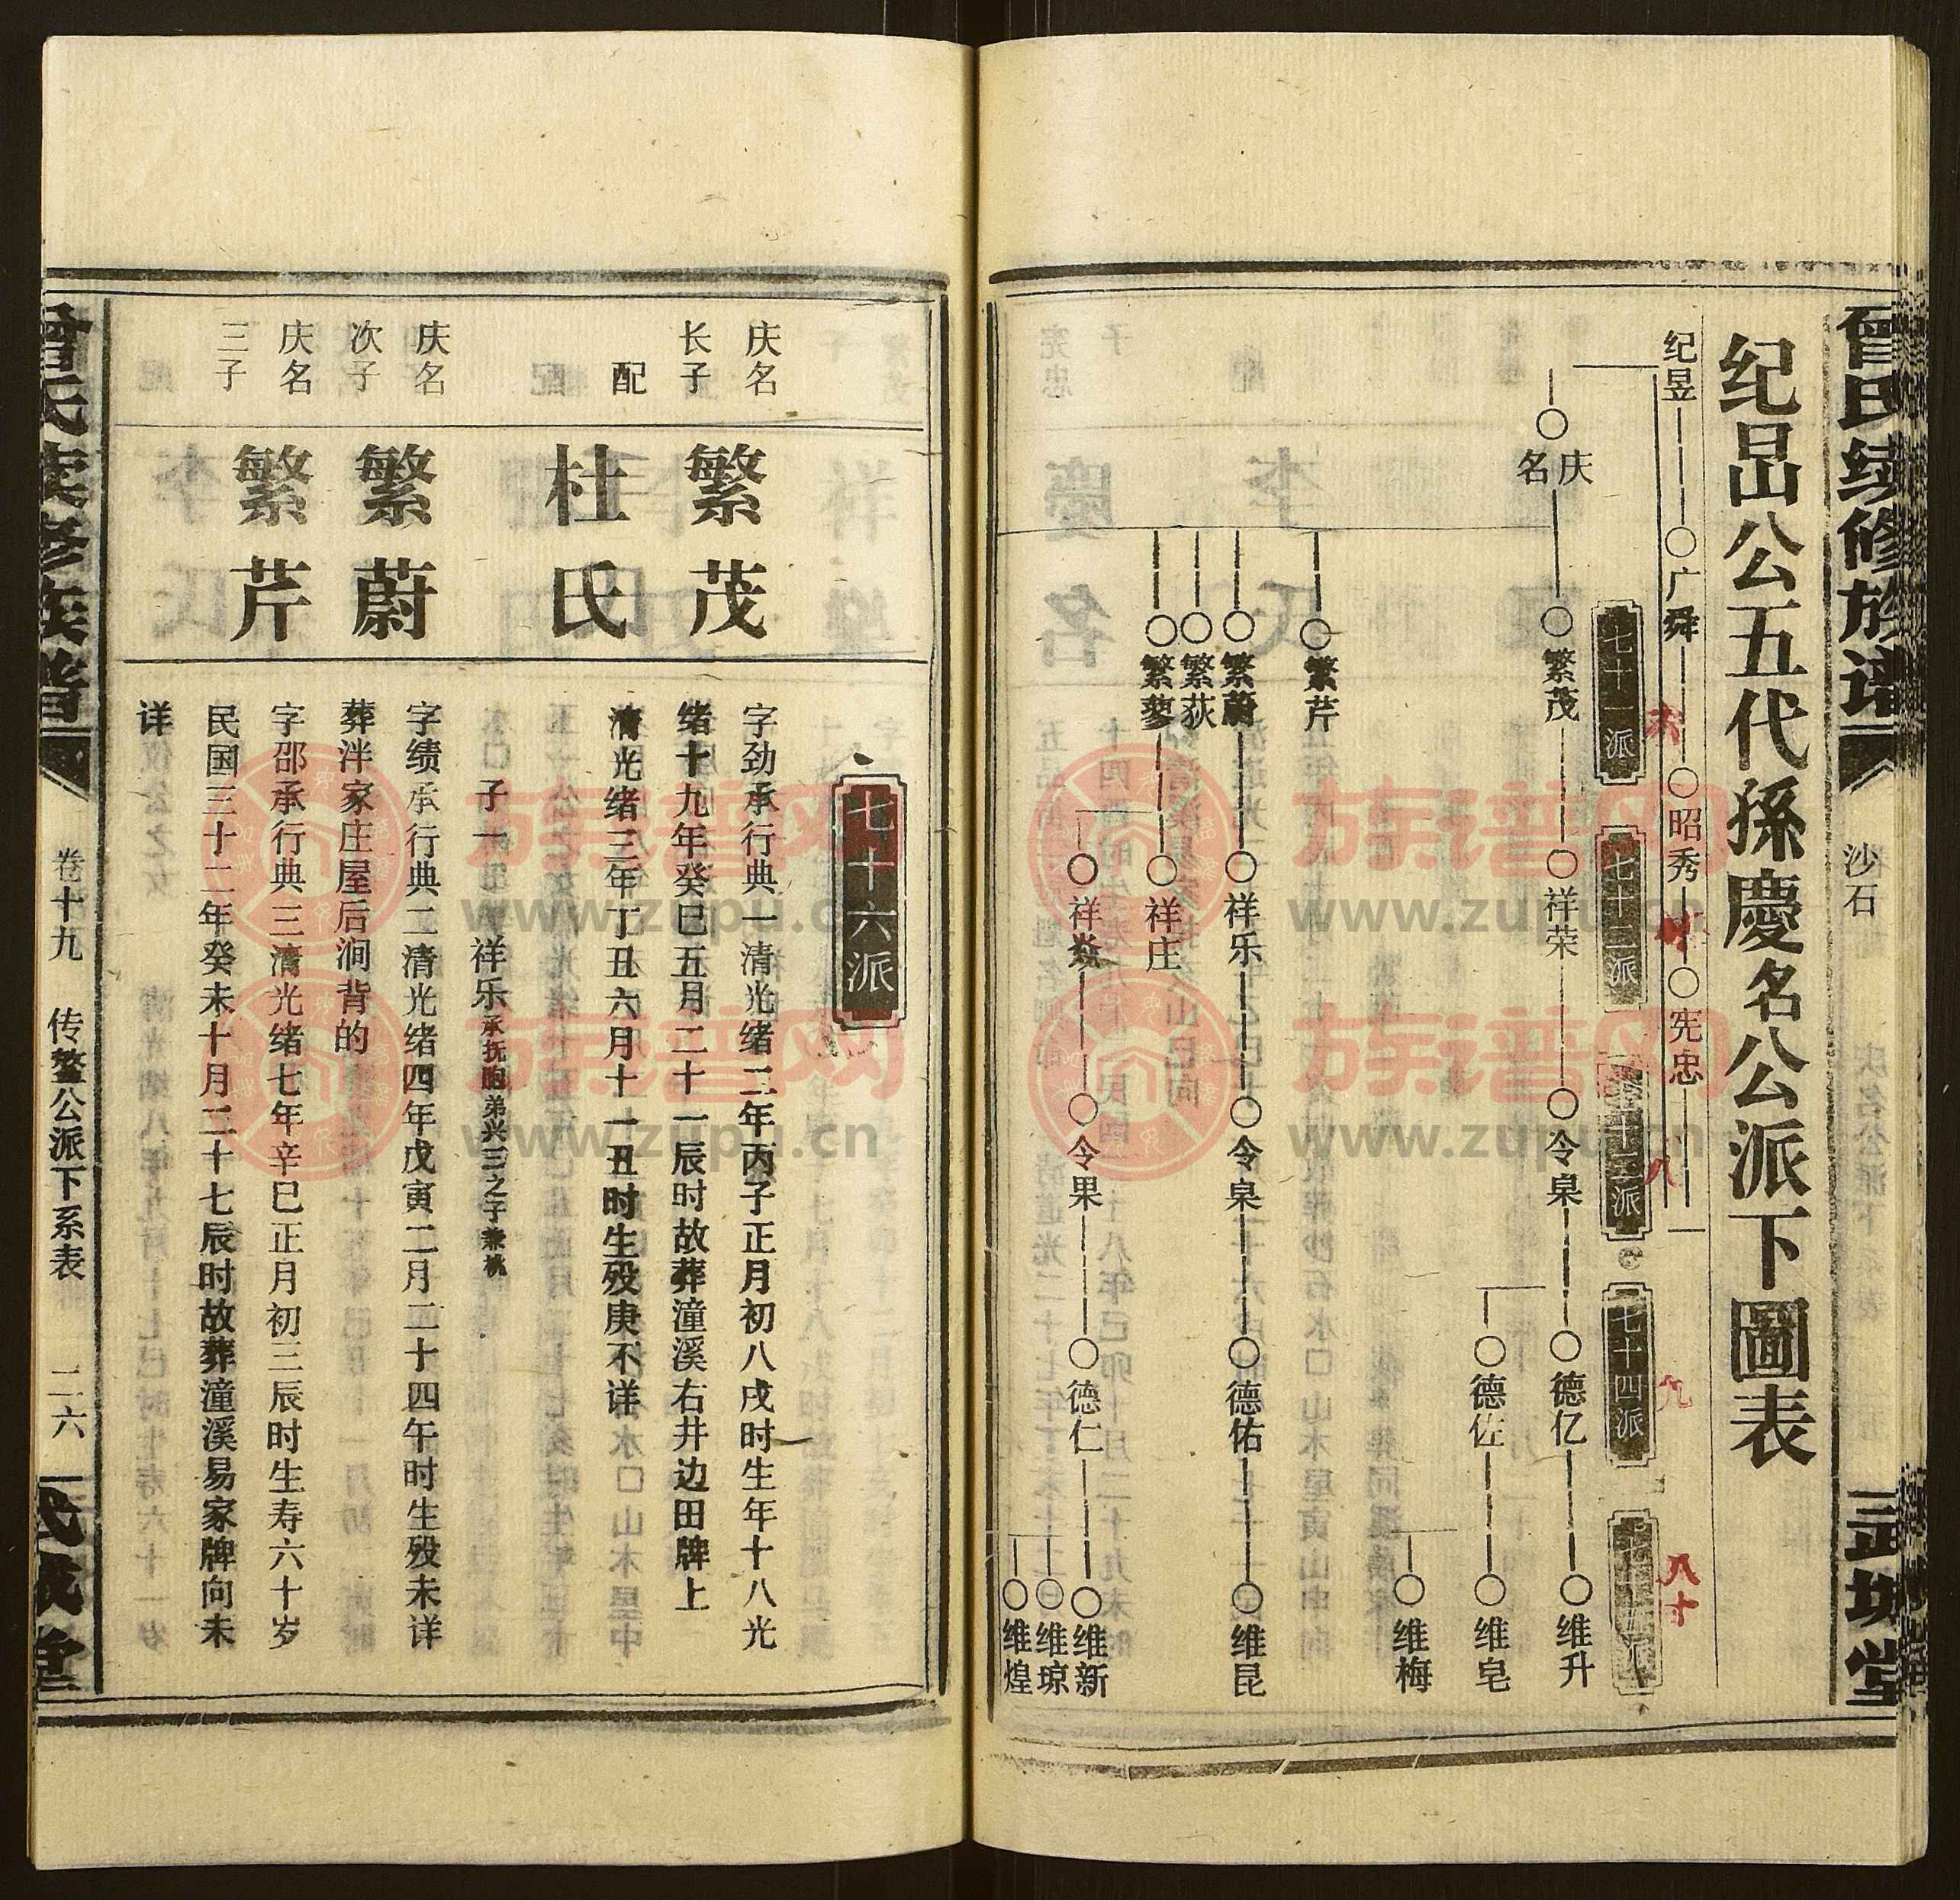 曾氏续修族谱
沙石
三垇堂
纪昷公五代孫慶名公派下圖表
纪昱
广舜
昭秀
宪忠
七十一派
七十二派
七十三派
七十四派
七十五派
六
八
九
八十
庆名
繁茂
祥荣
令泉
德亿
维升
德佐
维皂
维梅
繁芹
繁蔚
祥乐
令泉
德佑
维昆
繁荻
繁蓼
祥庄
祥燊
令果
德仁
维新
维琼
维煌
七十六派
庆名长子
繁茂
字劲承行典一清光绪二年丙子正月初八戌时生年十八光
绪十九年癸巳五月二十一辰时故葬潼溪右井边田牌上
配
杜氏
清光绪三年丁丑六月十一丑时生殁庚不详
子一
祥乐承抚胞弟兴三之子兼祧
庆名次子
繁蔚
字绩承行典二清光绪四年戊寅二月二十四午时生殁未详
葬泮家庄屋后涧背的
庆名三子
繁芹
字邵承行典三清光绪七年辛巳正月初三辰时生寿六十岁
民国三十二年癸未十月二十七辰时故葬潼溪易家牌向未
详
曾氏续修族谱
卷十九
传鳌公派下系表
二六
氏城堂
族谱网
www.zupu.cn
族谱网
www.zupu.cn
族谱网
www.zupu.cn
族谱网
www.zupu.cn